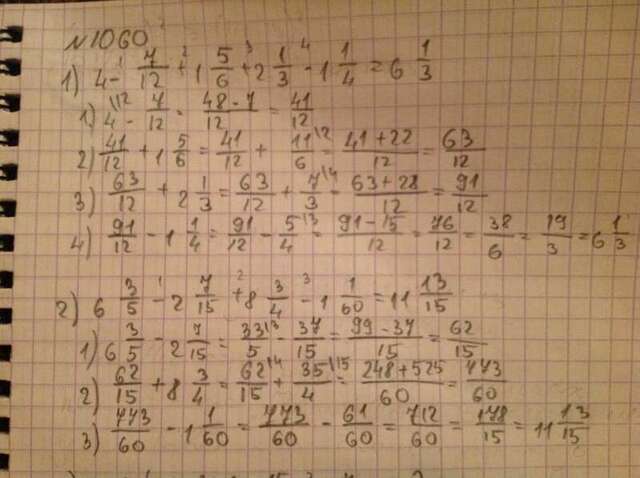 №1060
1) 4 - 7/12 + 1 5/6 + 2 1/3 - 1 1/4 = 6 1/3
1) 4 - 7/12 = 48-7/12 = 41/12
2) 41/12 + 1 5/6 = 41/12 + 11/6 = 41+22/12 = 63/12
3) 63/12 + 2 1/3 = 63/12 + 7/3 = 63+28/12 = 91/12
4) 91/12 - 1 1/4 = 91/12 - 5/4 = 91-15/12 = 76/12 = 38/6 = 19/3 = 6 1/3
2) 6 3/5 - 2 7/15 + 8 3/4 - 1 1/60 = 11 13/15
1) 6 3/5 - 2 7/15 = 33/5 - 37/15 = 99-37/15 = 62/15
2) 62/15 + 8 3/4 = 62/15 + 35/4 = 248+525/60 = 773/60
3) 773/60 - 1 1/60 = 773/60 - 61/60 = 712/60 = 178/15 = 11 13/15